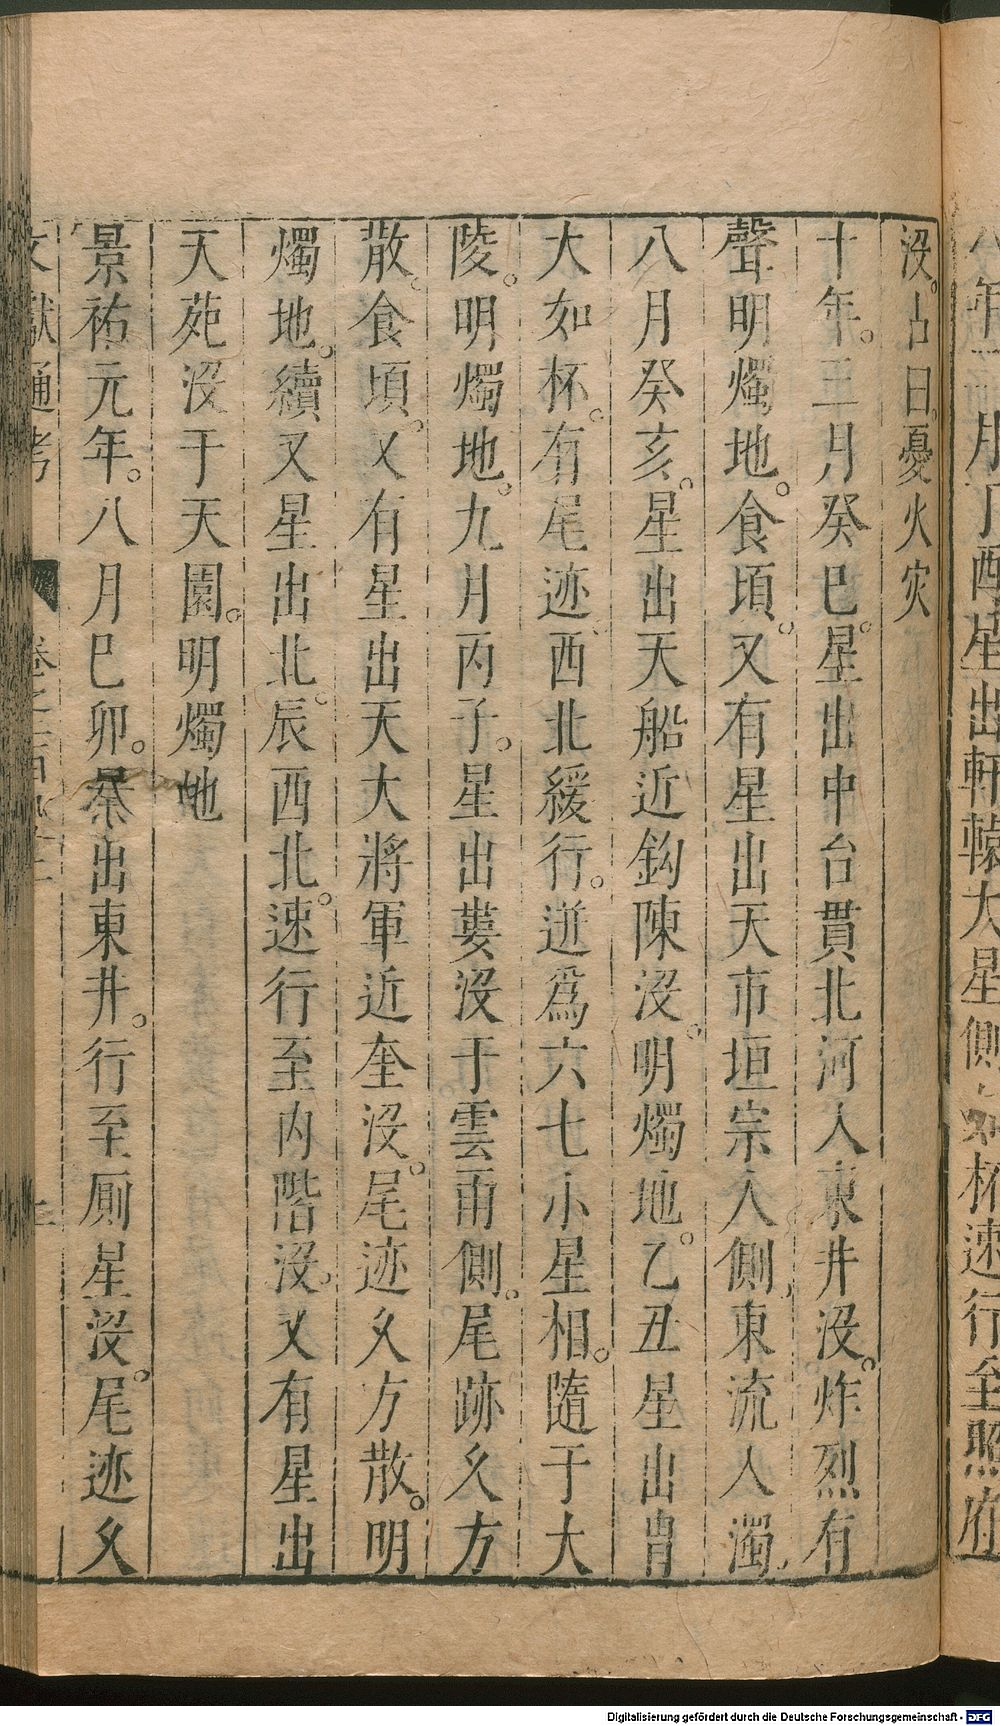 沒。占曰。憂火灾
十年。三月癸巳。星出中台貫北河入東井沒。炸烈有
聲明燭地。食頃。又有星出天市垣宗人側。東流入濁。
八月癸亥。星出天船近鈎陳沒。明燭地。乙丑星出胃
大如杯。有尾迹西北緩行。迸爲六七小星相。隨于大
陵。明燭地。九月丙子。星出婁沒于雲雨側。尾跡久方
散。食頃。又有星出天大將軍近奎沒。尾迹久方散。明
燭地。續又星出北。辰西北。速行至內階沒。又有星出
天苑沒于天園。明燭地
景祐元年。八月巳卯。星出東井。行至厠星沒。尾迹久
文獻通考
月丁酉星出軒轅大星側 杯速行至照府
Digitalisierung gefördert durch die Deutsche Forschungsgemeinschaft - DFG